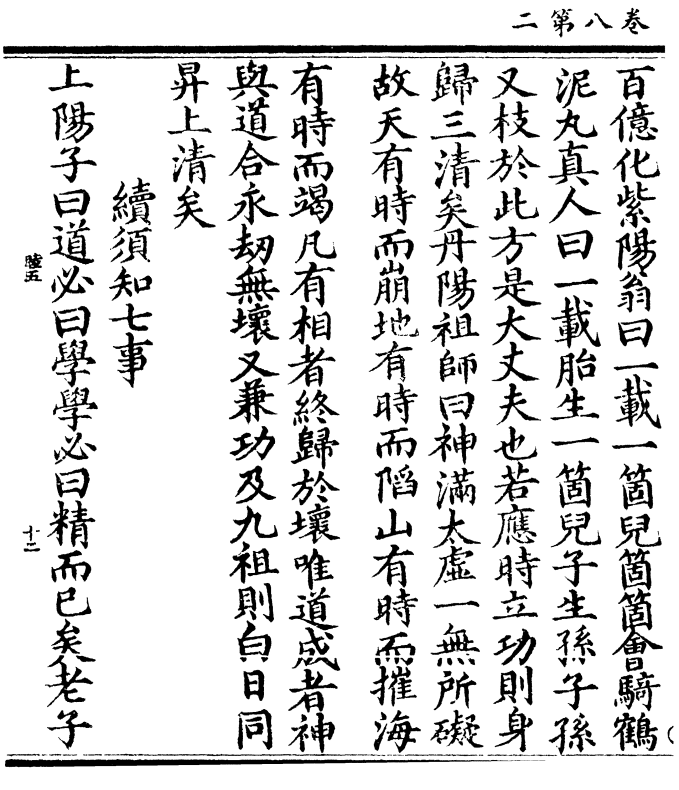 卷八第二
百億化紫陽翁曰一載一箇兒箇箇會騎鶴
泥丸真人曰一載胎生一箇兒子生孫子孫
又枝於此方是大丈夫也若應時立功則身
歸三清矣丹陽祖師曰神滿太虛一無所礙
故天有時而崩地有時而陷山有時而摧海
有時而竭凡有相者終歸於壞唯道成者神
與道合永劫無壞又兼功及九祖則白日同
昇上清矣
續須知七事
上陽子曰道必曰學學必曰精而已矣老子
五
十二